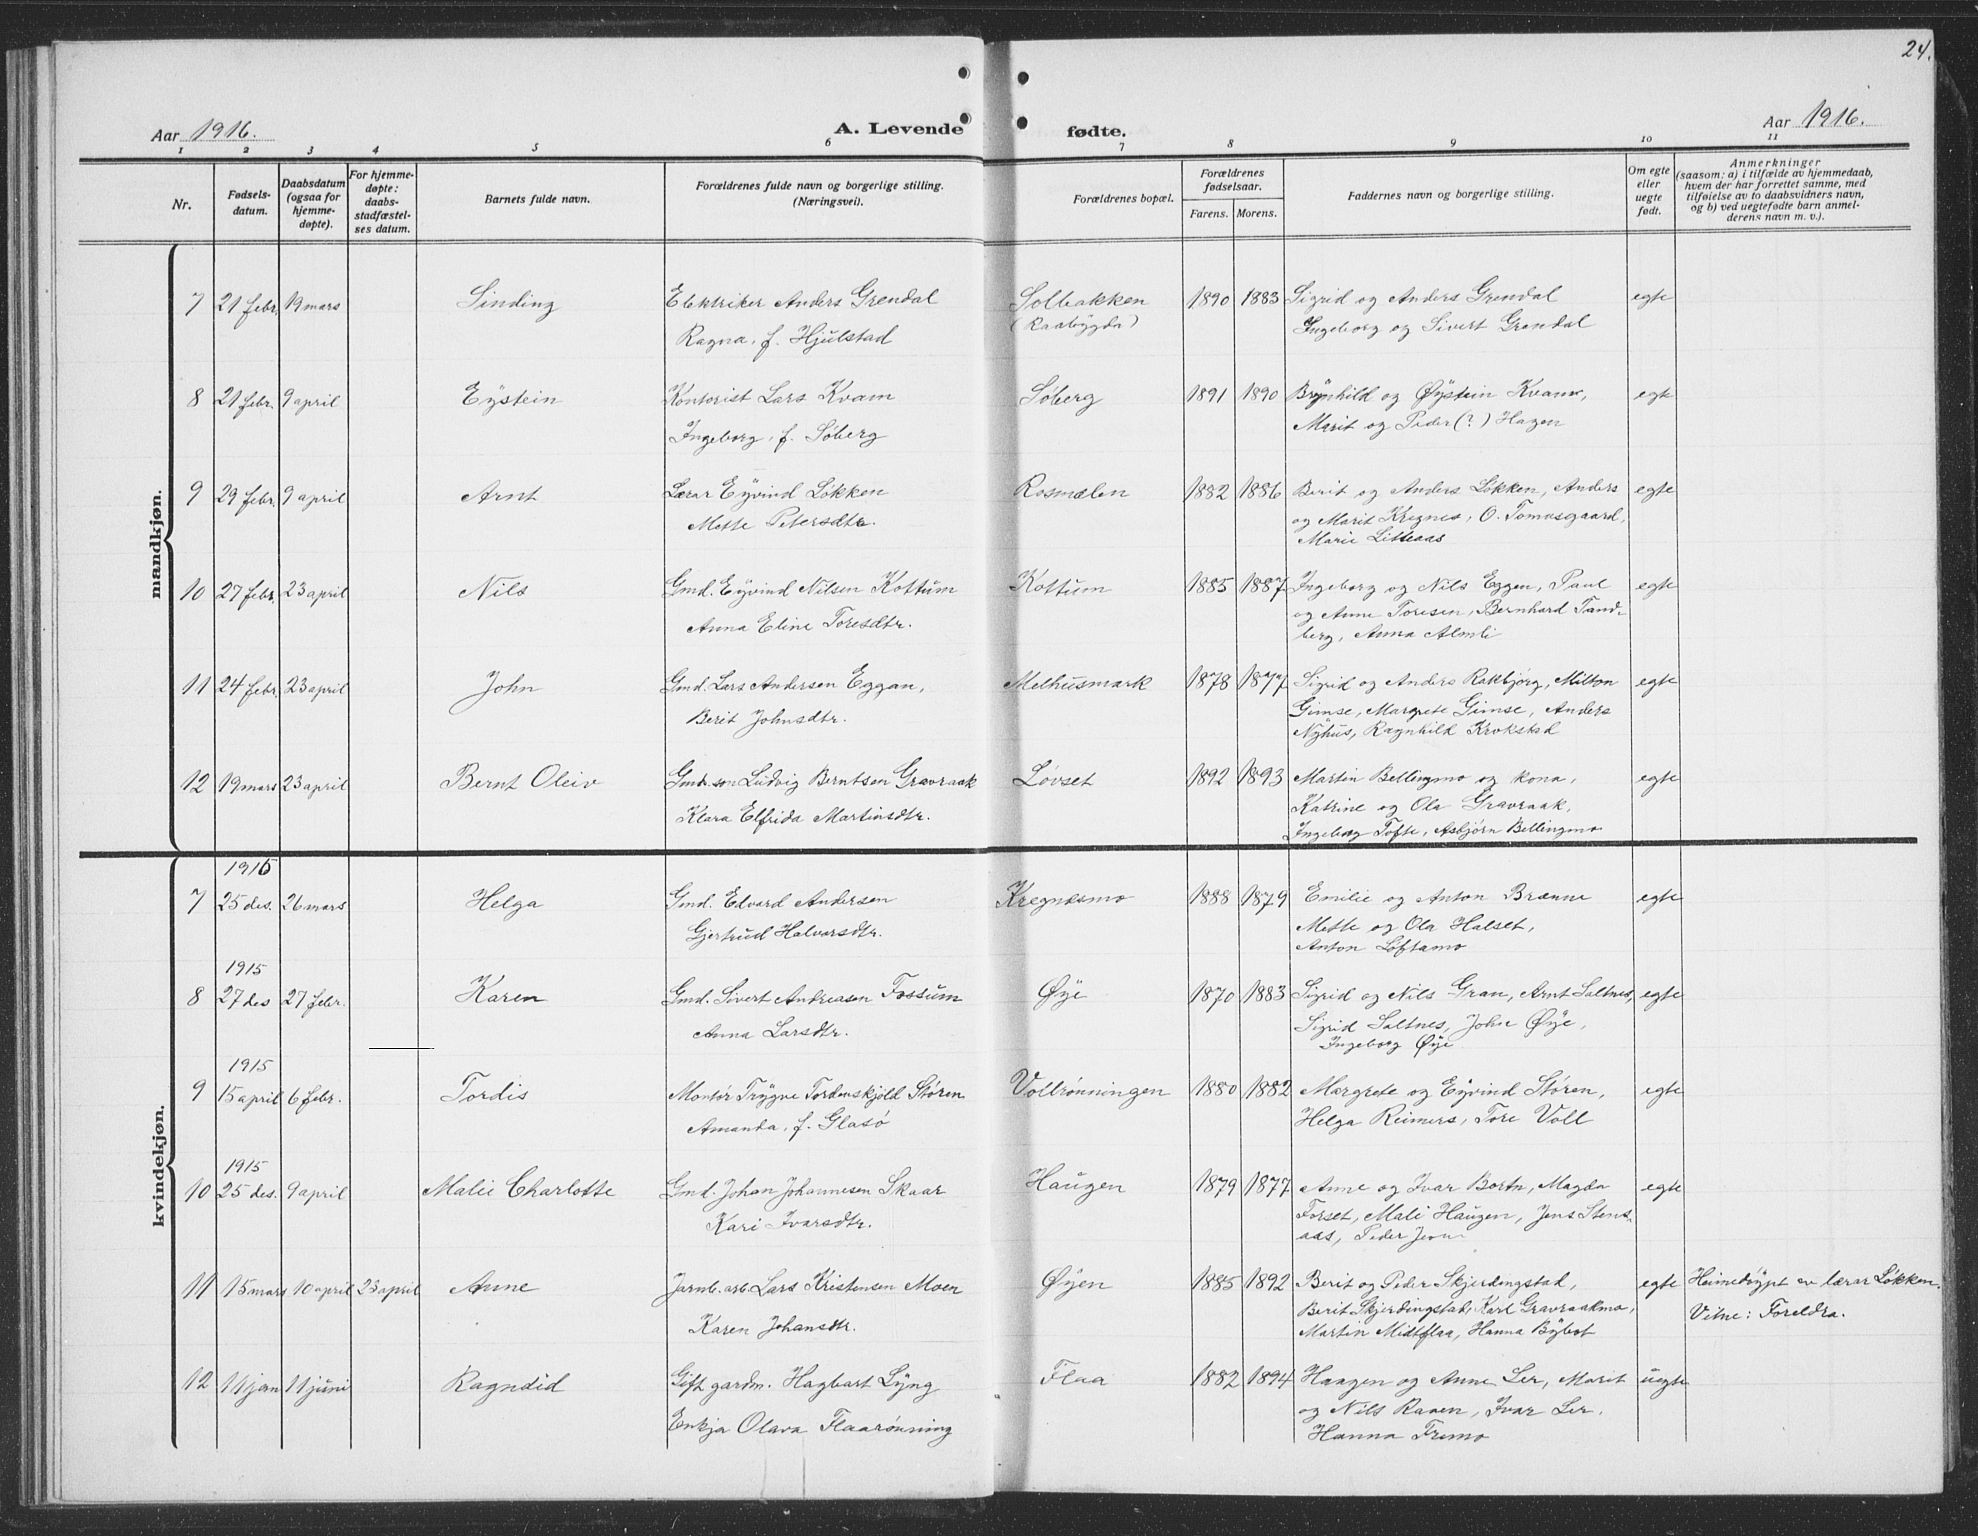 24.
Aar 1916.
A. Levende fødte.
Aar 1916.
1 2 3 4 5 6 7 8 9 10 11
Nr.
Fødsels-
datum.
Daabsdatum
(ogsaa for
hjemme-
døpte).
For hjemme-
døpte:
daabs-
stadfæstel-
ses datum.
Barnets fulde navn.
Forældrenes fulde navn og borgerlige stilling.
(Næringsvei).
Forældrenes bopæl.
Forældrenes
fødselsaar.
Farens. Morens.
Faddernes navn og borgerlige stilling.
Om egte
eller
uegte
født.
Anmerkninger
(saasom: a) i tilfælde av hjemmedaab,
hvem der har forrettet samme, med
tilføielse av to daabsvidners navn,
og b) ved uegtefødte barn anmel-
derens navn m. v.).
mandkjøn.
7 21 febr. 19 mars Sinding Elektriker Anders Grendal Solbakken 1890 1883 Sigrid og Anders Grendal egte
(Raabygda) Ingeborg og Sivert Grendal
Ragna, f. Hjulstad
8 21 febr. 9 april Eystein Kontorist Lars Kvam Søberg 1891 1890 Brynhild og Øystein Kvam, egte
Ingeborg, f. Søberg Marit og Peder (?) Hagen
9 29 febr. 9 april Arnt Lærar Eyvind Løkken Rosmælen 1882 1886 Berit og Anders Løkken, Anders egte
Mette Petersdtr. og Marit Kregnes, O. Tomasgaard,
Marie Litleaas
10 27 febr. 23 april Nils Gmd. Eyvind Nilsen Kottum Kottum 1885 1887 Ingeborg og Nils Eggen, Paul egte
Anna Eline Toresdtr. og Anne Toresen, Bernhard Tand-
berg, Anna Almli
11 24 febr. 23 april John Gmd. Lars Andersen Eggan, Melhusmark 1878 1877 Sigrid og Anders Rakbjørg, Milton egte
Berit Johnsdtr. Gimse, Margrete Gimse, Anders
Nyhus, Ragnhild Krokstad
12 19 mars 23 april Bernt Oleiv Gmd. son Ludvig Berntsen Gravraak Løvset 1892 1893 Martin Bellingmo og kona, egte
Klara Elfrida Martinsdtr. Katrine og Ola Gravraak,
Ingeborg Tofte, Asbjørn Bellingmo
kvindekjøn.
1915
7 25 des. 26 mars Helga Gmd. Edvard Andersen Kregnesmo 1888 1879 Emilie og Anton Brænne egte
Gjertrud Halvorsdtr. Mette og Ola Halset,
Anton Løftamo
1915
8 27 des 27 febr. Karen Gmd. Sivert Andreasen Fossum Øye 1870 1883 Sigrid og Nils Gran, Arnt Saltnes, egte
Anna Larsdtr. Sigrid Saltnes, John Øye,
Ingeborg Øye
1915
9 15 april 6 febr. Tordis Montør Trygve Tordenskjold Støren Vollrønningen 1880 1882 Margrete og Eyvind Støren, egte
Amanda, f. Glasø Helga Reimers, Tore Voll
1915
10 25 des. 9 april Malie Charlotte Gmd. Johan Johannesen Skaar Haugen 1879 1877 Anne og Ivar Bortn, Magda egte
Kari Ivarsdtr. Forset, Mali Haugen, Jens Stens-
aas, Peder
11 15 mars 10 april 23 april Anne Jarnb. arb. Lars Kristensen Moen Øyen 1885 1892 Berit og Peder Skjerdingstad, egte Heimedøypt av lærar Løkken.
Karen Johansdtr. Berit Skjerdingstad, Karl Gravraakmo, Vitne: Foreldra.
Martin Midtflaa, Hanna Bybot
12 11 jan 11 juni Ragndid Gift gardm. Hagbart Lyng Flaa 1882 1894 Haagen og Anne Ler, Marit uegte
Enkja Olava Flaarønning og Nils Raaen, Ivar Ler.
Hanna Fremo